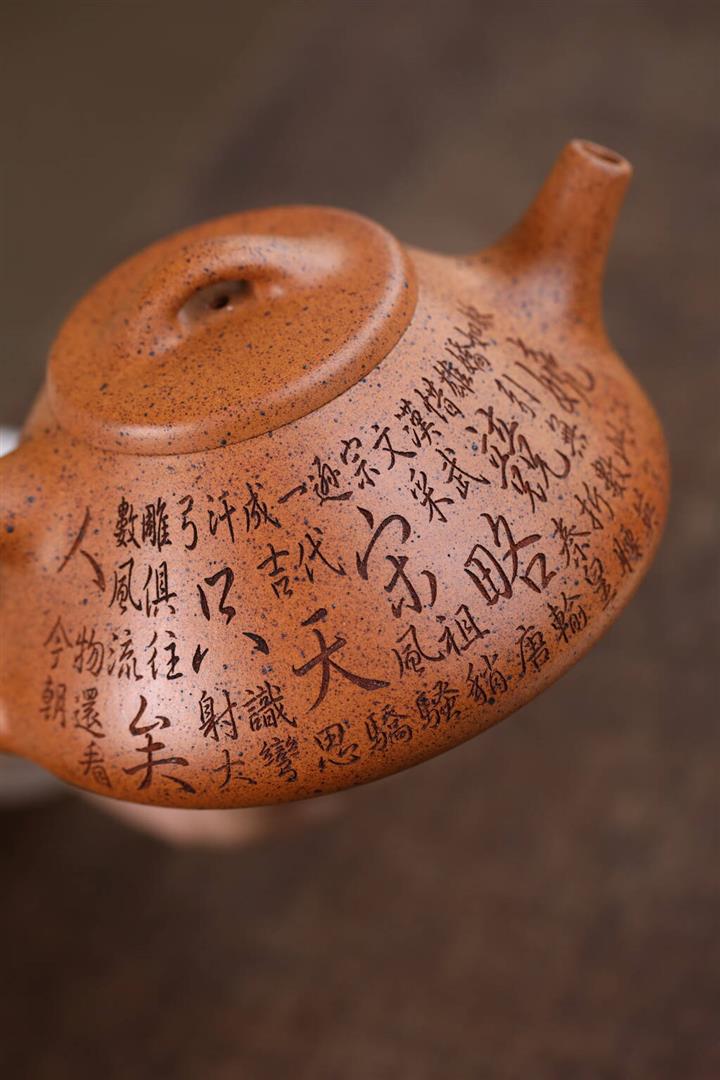 嬌引無數
雄競折腰
惜秦皇
漢武略輸
文采唐
宗宋祖稍
遜風騷
一代天驕
成吉思
汗只識彎
弓射大
雕俱往矣
數風流
人物還看
今朝